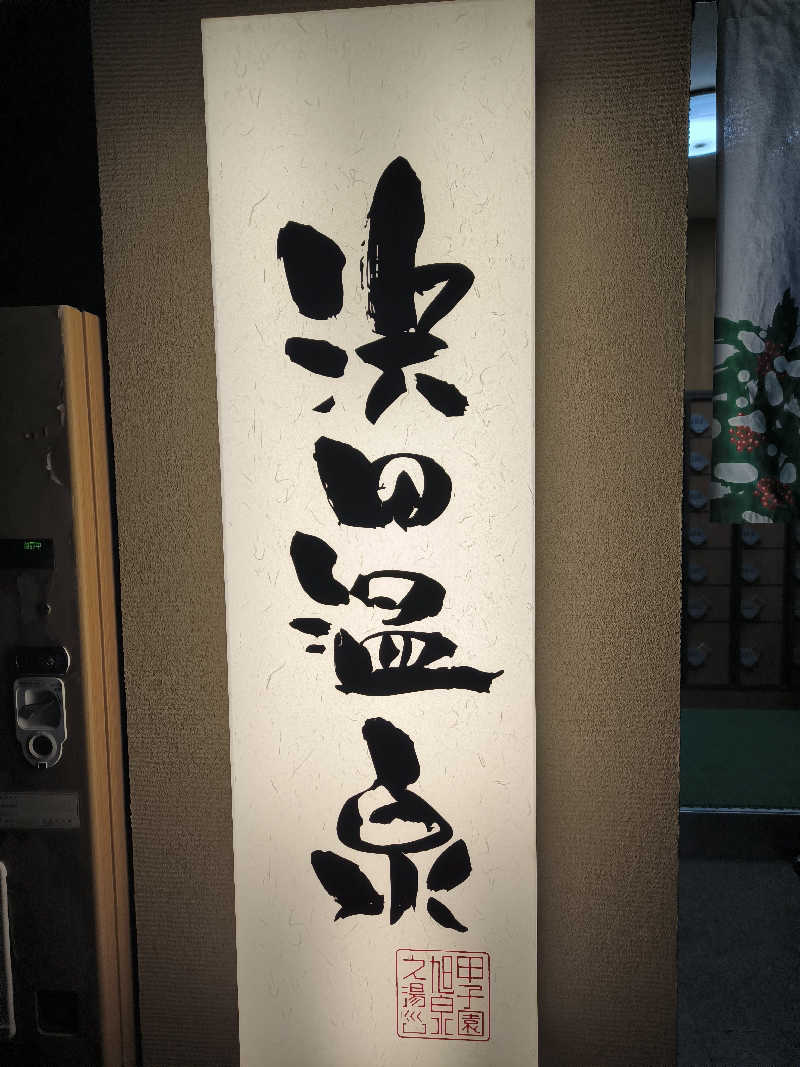 浜田温泉
甲子園
旭泉
之湯